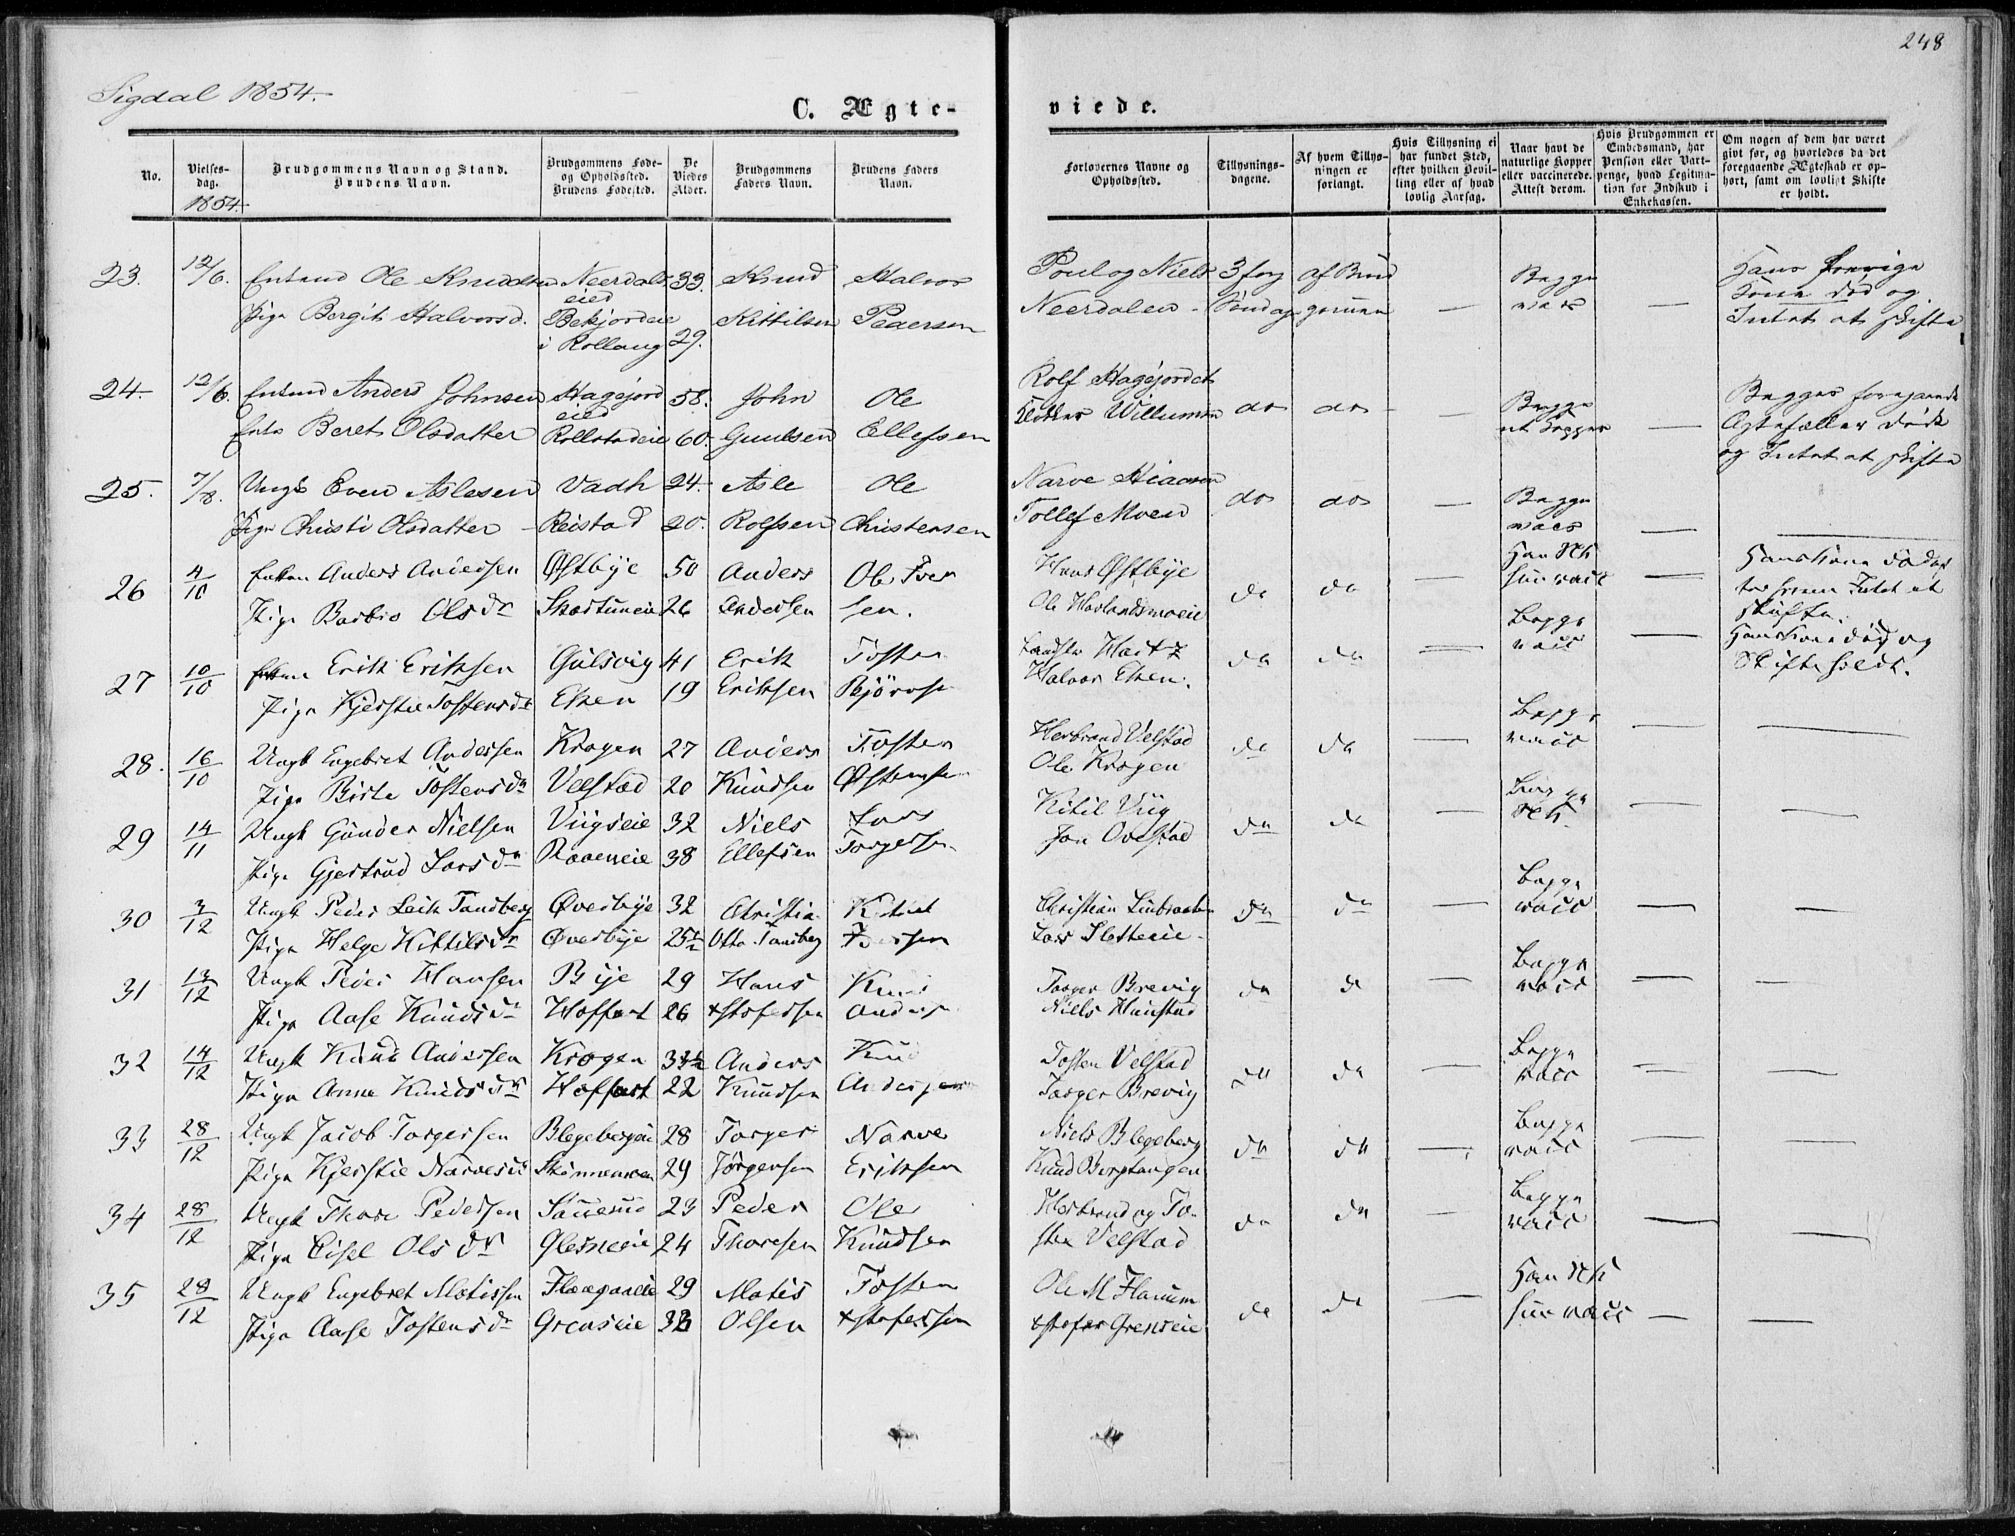 248
Sigdal 1854.
C. Ægte-
viede.
No.
Vielses-
dag.
1854.
Brudgommens Navn og Stand.
Brudens Navn.
Brudgommens Føde-
og Opholdssted.
Brudens Fødested.
De
Viedes
Alder.
Brudgommens
Faders Navn.
Brudens Faders
Navn.
Forlovernes Navne og
Opholdssted.
Tillysnings-
dagene.
Af hvem Tillys-
ningen er
forlangt.
Hvis Tillysning ei
har fundet Sted,
efter hvilken Bevil-
ling eller af hvad
lovlig Aarsag.
Naar havt de
naturlige Kopper
eller vaccinerede.
Attest derom.
Hvis Brudgommen er
Embedsmand, har
Pension eller Vart-
penge, hvad Legitima-
tion for Indskud i
Enkekassen.
Om nogen af dem har været
givt før, og hvorledes da det
foregaaende Ægteskab er op-
hørt, samt om lovligt Skifte
er holdt.
23. 12/6. Enkemd Ole Knudsen Neerdals 33. Knud Halvor Poul og Niels 3 forg af Brud Begge Hans forrige
eied Kone død og
Pige Bergit Halvorsd. Bekjordeie Kittilsen Pedersen Neerdalen - Søndage gommen — vacc — Intet at skifte
i Rollaug 29.
24. 12/6. Enkemd Anders Johnsen Hagejord 58. John Ole Rolf Hagejordet do do — Begge Begges foregaaende
eied
Enke Beret Olsdatter Rollstadeie 60. Gunlsen Ellefsen Willumsen nt Kopper — Ægtefæller døde
og Intet at skifte
25. 7/8. Ungk Even Aslesen Vadh 24. Asle Ole Narve do do — Begge
Pige Christi Olsdatter - Reistad 20. Rolfsen Christensen Tollef Moen vacc —
26 4/10 Enkem Anders Andersen Østbye 50 Anders Ole Iver Hans Østbye do do — Han Nth — Hans Kone død
hun vacc Intet at
Pige Barbro Olsdr Skartumeie 26 Andersen sen. Ole Havlandsmoeie skifte.
27 10/10 Enkem Erik Eriksen Gulsvig 41 Erik Tosten do do — Begge — Hans Kone død og
vacc
Pige Kjerstie Tostensdr Eken 19 Eriksen Bjørnsen Halvor Eken. Skifte holdt.
28. 16/10 Ungk Engebret Andersen Krogen 27 Anders Tosten Herbrand Velstad do do — Begge — —
Pige Birte Tostensdr Velstad 20 Knudsen Østensen Ole Krogen vacc
29 14/11 Ungk Gunder Nielsen Viigseie 32 Niels Lars Kitil Viig do do — Begge — —
Pige Gjertrud Larsdr Raaeneie 38 Ellefsen Torgersen Jon Ovestad Nth.
30 3/12 Ungk Peder Leik Tandberg Øverbye 32 Christian Kittil Christian do do — Begge — —
Pige Helge Kittilsdr Øverbye 25½ Otto Tandberg Iversen Lars Sletteeie vacc
31 13/12 Ungk Peder Hansen Bye 29 Hans Knud Torger Brevig do do — Begge — —
Pige Aase Knudsdr Hoffart 26 Xstofersen Anders Niels Hunstad vacc
32 14/12 Ungk Knud Andersen Krogen 33½ Anders Knud Tosten Velstad do do — Begge — —
Pige Anne Knudsdr Hoffart 22 Knudsen Andersen Torger Brevig vacc
33 28/12 Ungk Jacob Torgersen Blegebergeie 28 Torger Narve Niels Blegeberg do do — Begge — —
Pige Kjerstie Narvesdr 29 Jørgensen Eriksen Knud Bergtangen vacc
34 28/12 Ungk Thore Pedersen 23 Peder Ole Herbrand og To- do do — Begge — —
Pige Eisel Olsdr Glesneeie 24 Thoresen Knudsen sten Velstad vacc
35 28/12 Ungk Engebret Matissen Flaaganeie 29 Matis Tosten Ole M Flanum do do — Han Nth
Pige Aase Tostensdr Grenseie 32 Olsen Xstofersen Xstofer Grenseie hun vacc — —